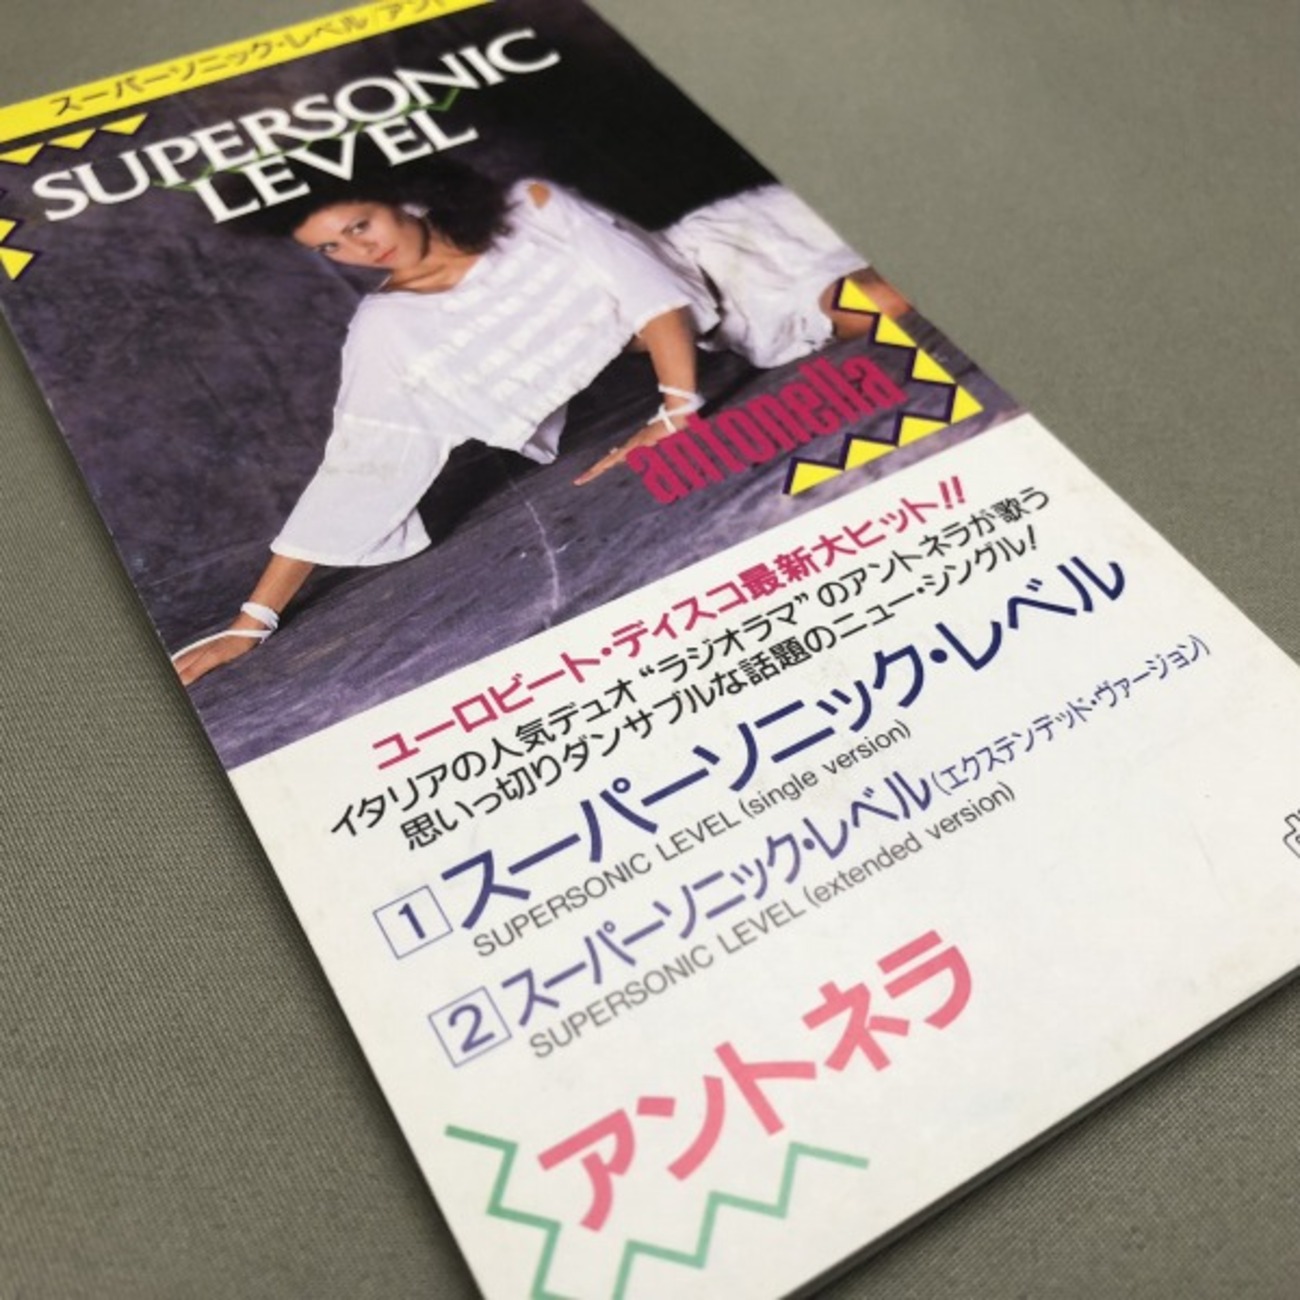 スーパーソニック・レベル/アント
SUPERSONIC
LEVEL
antonella
ユーロビート・ディスコ最新大ヒット!!
イタリアの人気デュオ“ラジオラマ”のアントネラが歌う
思いっ切りダンサブルな話題のニュー・シングル!
1 スーパーソニック・レベル
SUPERSONIC LEVEL (single version)
2 スーパーソニック・レベル(エクステンデッド・ヴァージョン)
SUPERSONIC LEVEL (extended version)
アントネラ